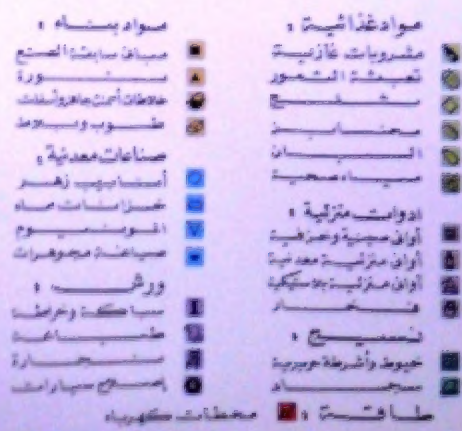 مواد غذائية :
مشروبات غازية
تعبئة التمور
ثلج
مخابز
البان
مياه صحية
ادوات منزلية :
أواني صينية وخزفية
أواني منزلية معدنية
أواني منزلية بلاستيكية
فخار
نسيج :
خيوط وأشرطة حريرية
سجاد
طاقة :
محطات كهرباء
مواد بناء :
مباني سابقة الصنع
نورة
خلاطات أسمنت جاهز وأسفلت
طوب وبلاط
صناعات معدنية :
أنابيب زهر
خزانات ماء
الومنيوم
صياغة مجوهرات
ورش :
سباكة وخراطة
طباعة
نجارة
إصلاح سيارات